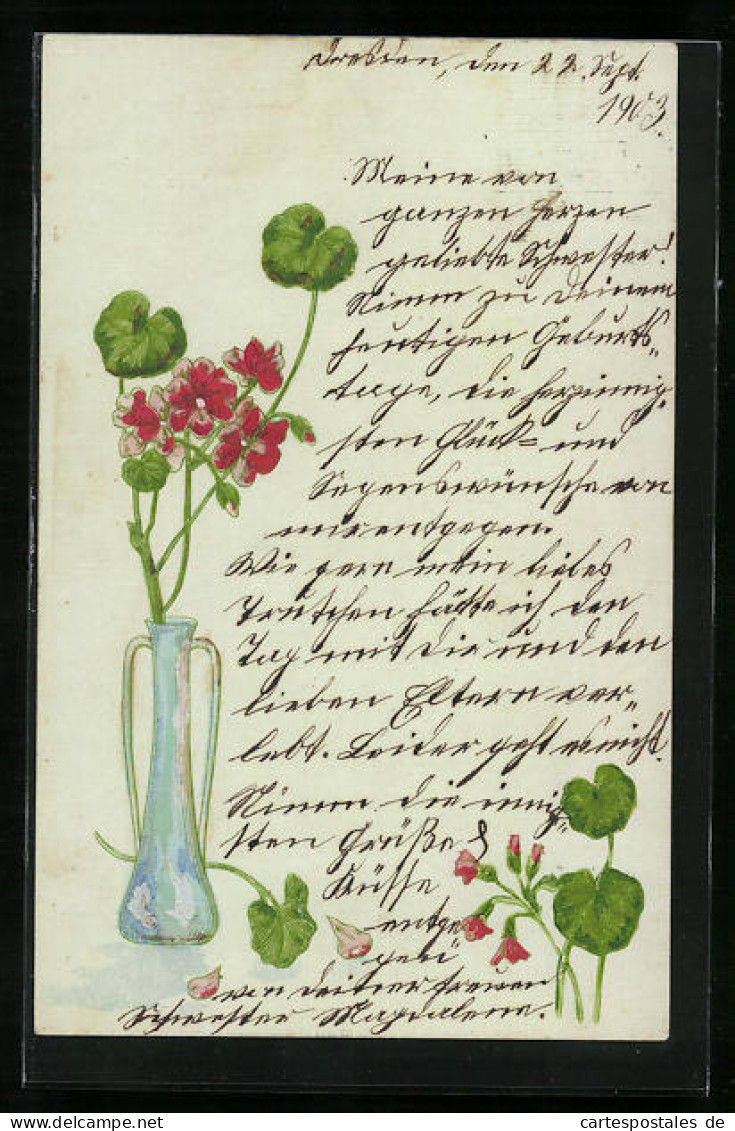 Dresden, den 22. Sept.
1903.
Meine von
ganzen Herzen
geliebte Schwester!
Nimm zu Deinem
heutigen Geburts„
tage, die herzinnig„
sten Glück= und
Segenswünsche von
mir entgegen.
Wie gern mein liebes
Trutchen hätte ich den
Tag mit dir und den
lieben Eltern ver„
lebt. Leider geht es nicht.
Nimm die innig„
sten Grüße &
Küsse
entge
gen
von deiner treuen
Schwester Magdalene.
cartespostales de